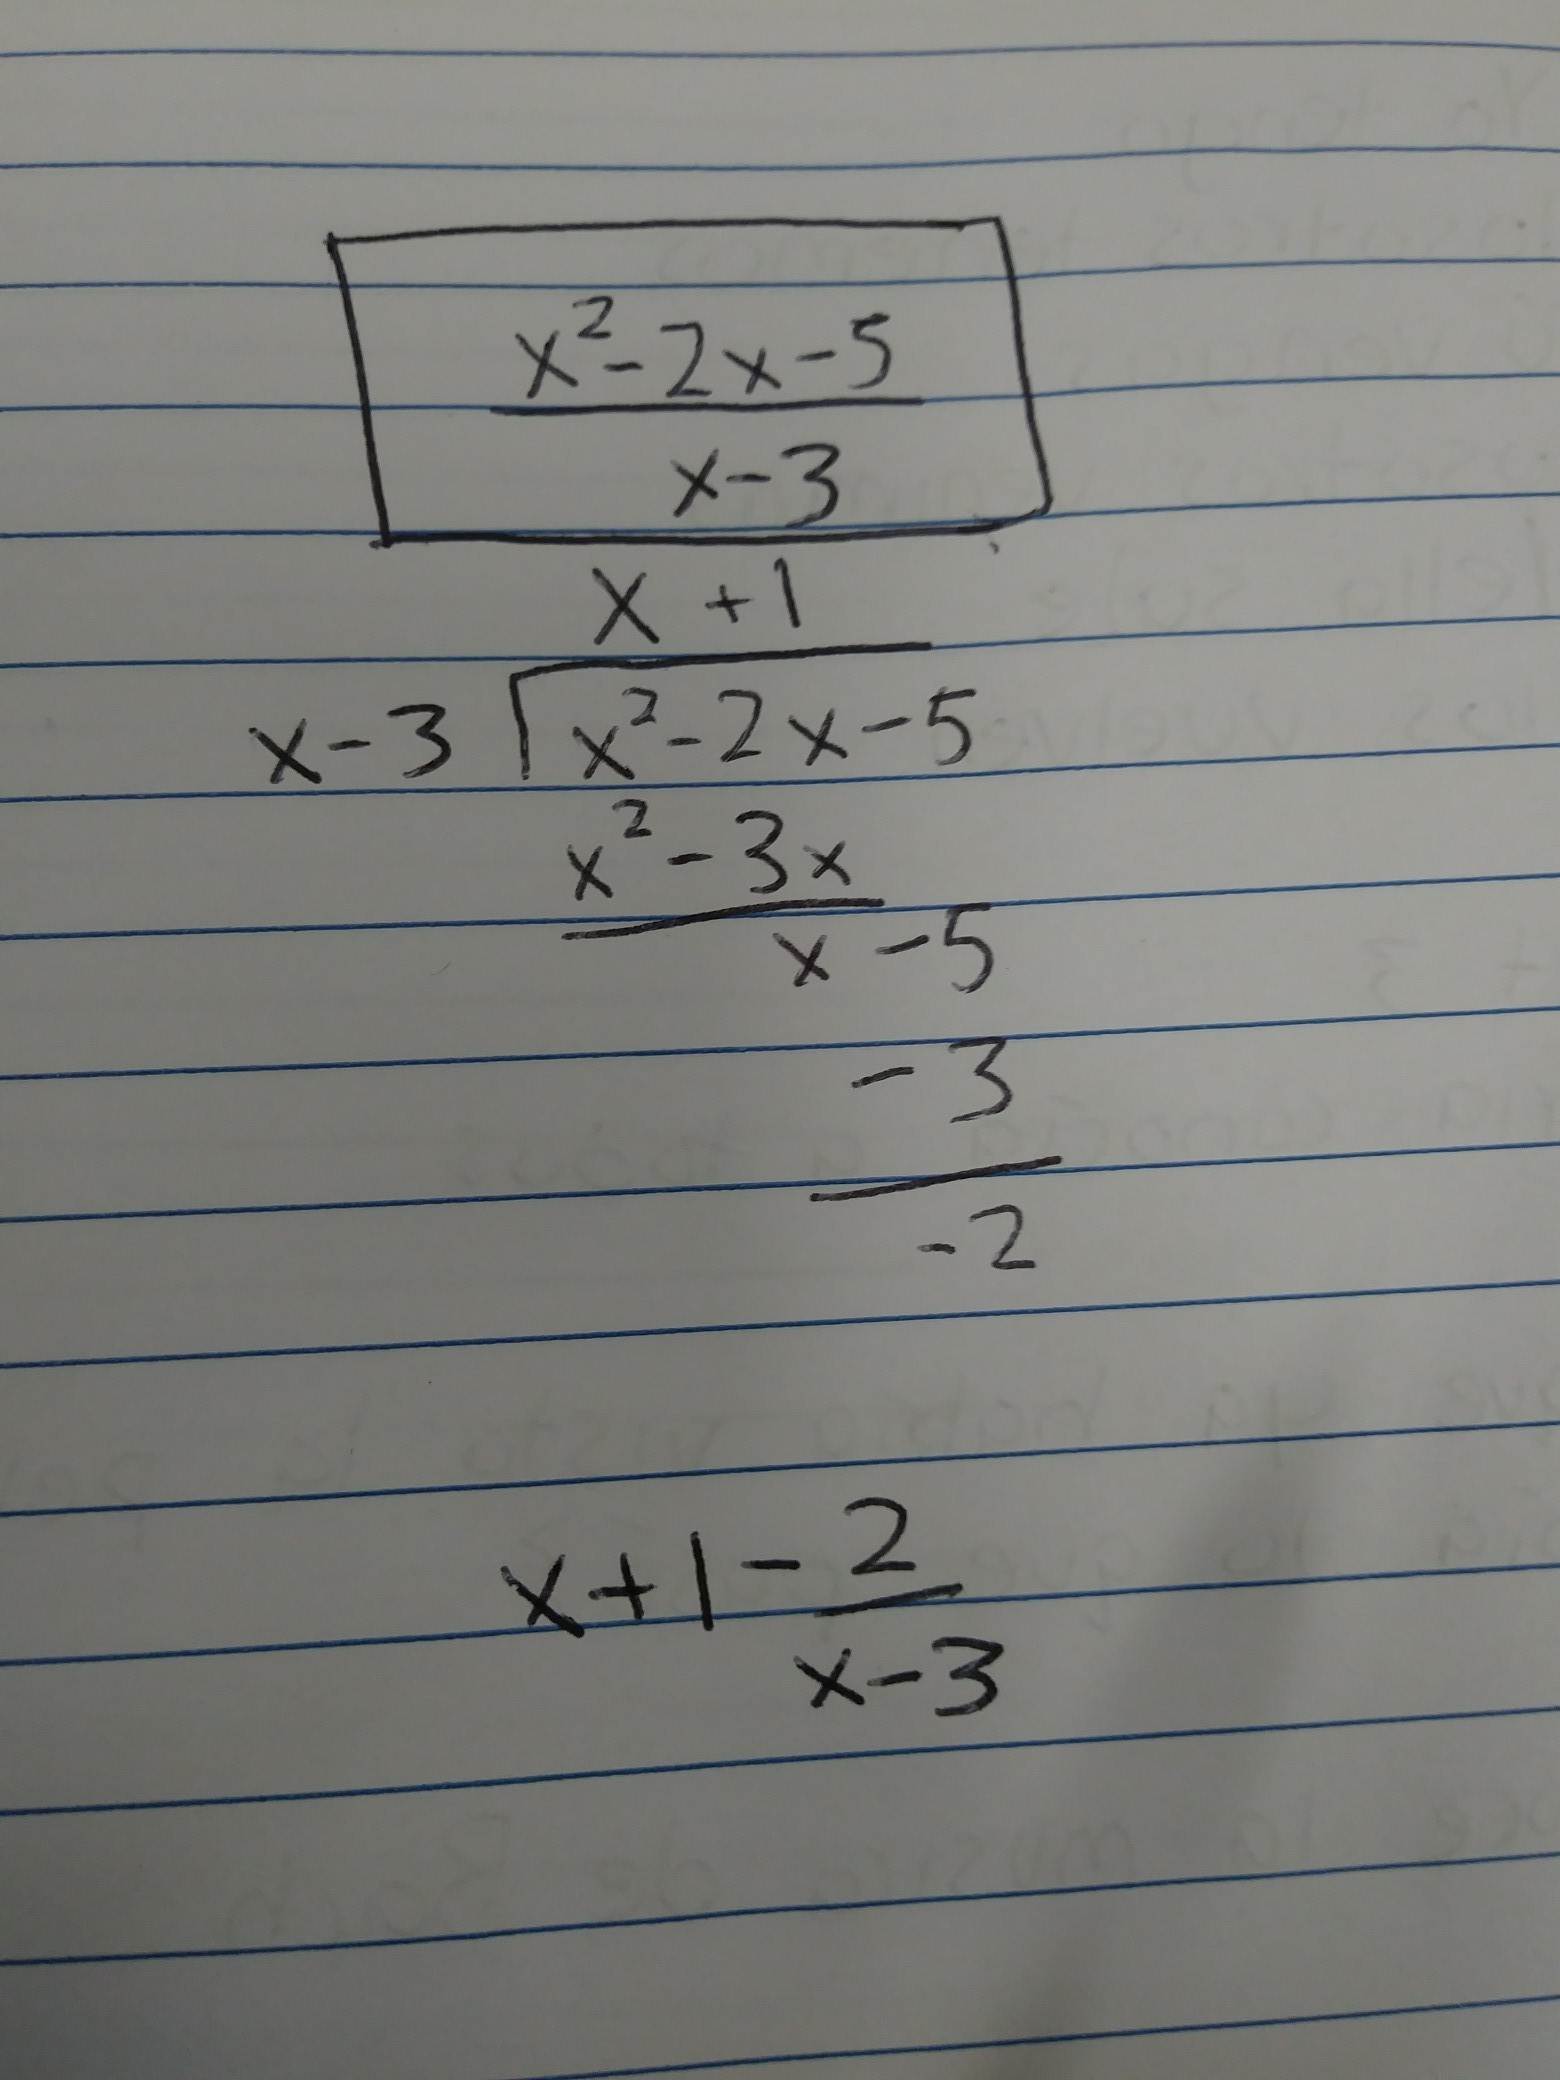 x²-2x-5
x-3
x +1
x-3 x²-2x-5
x²-3x
x -5
-3
-2
x+1-2
x-3